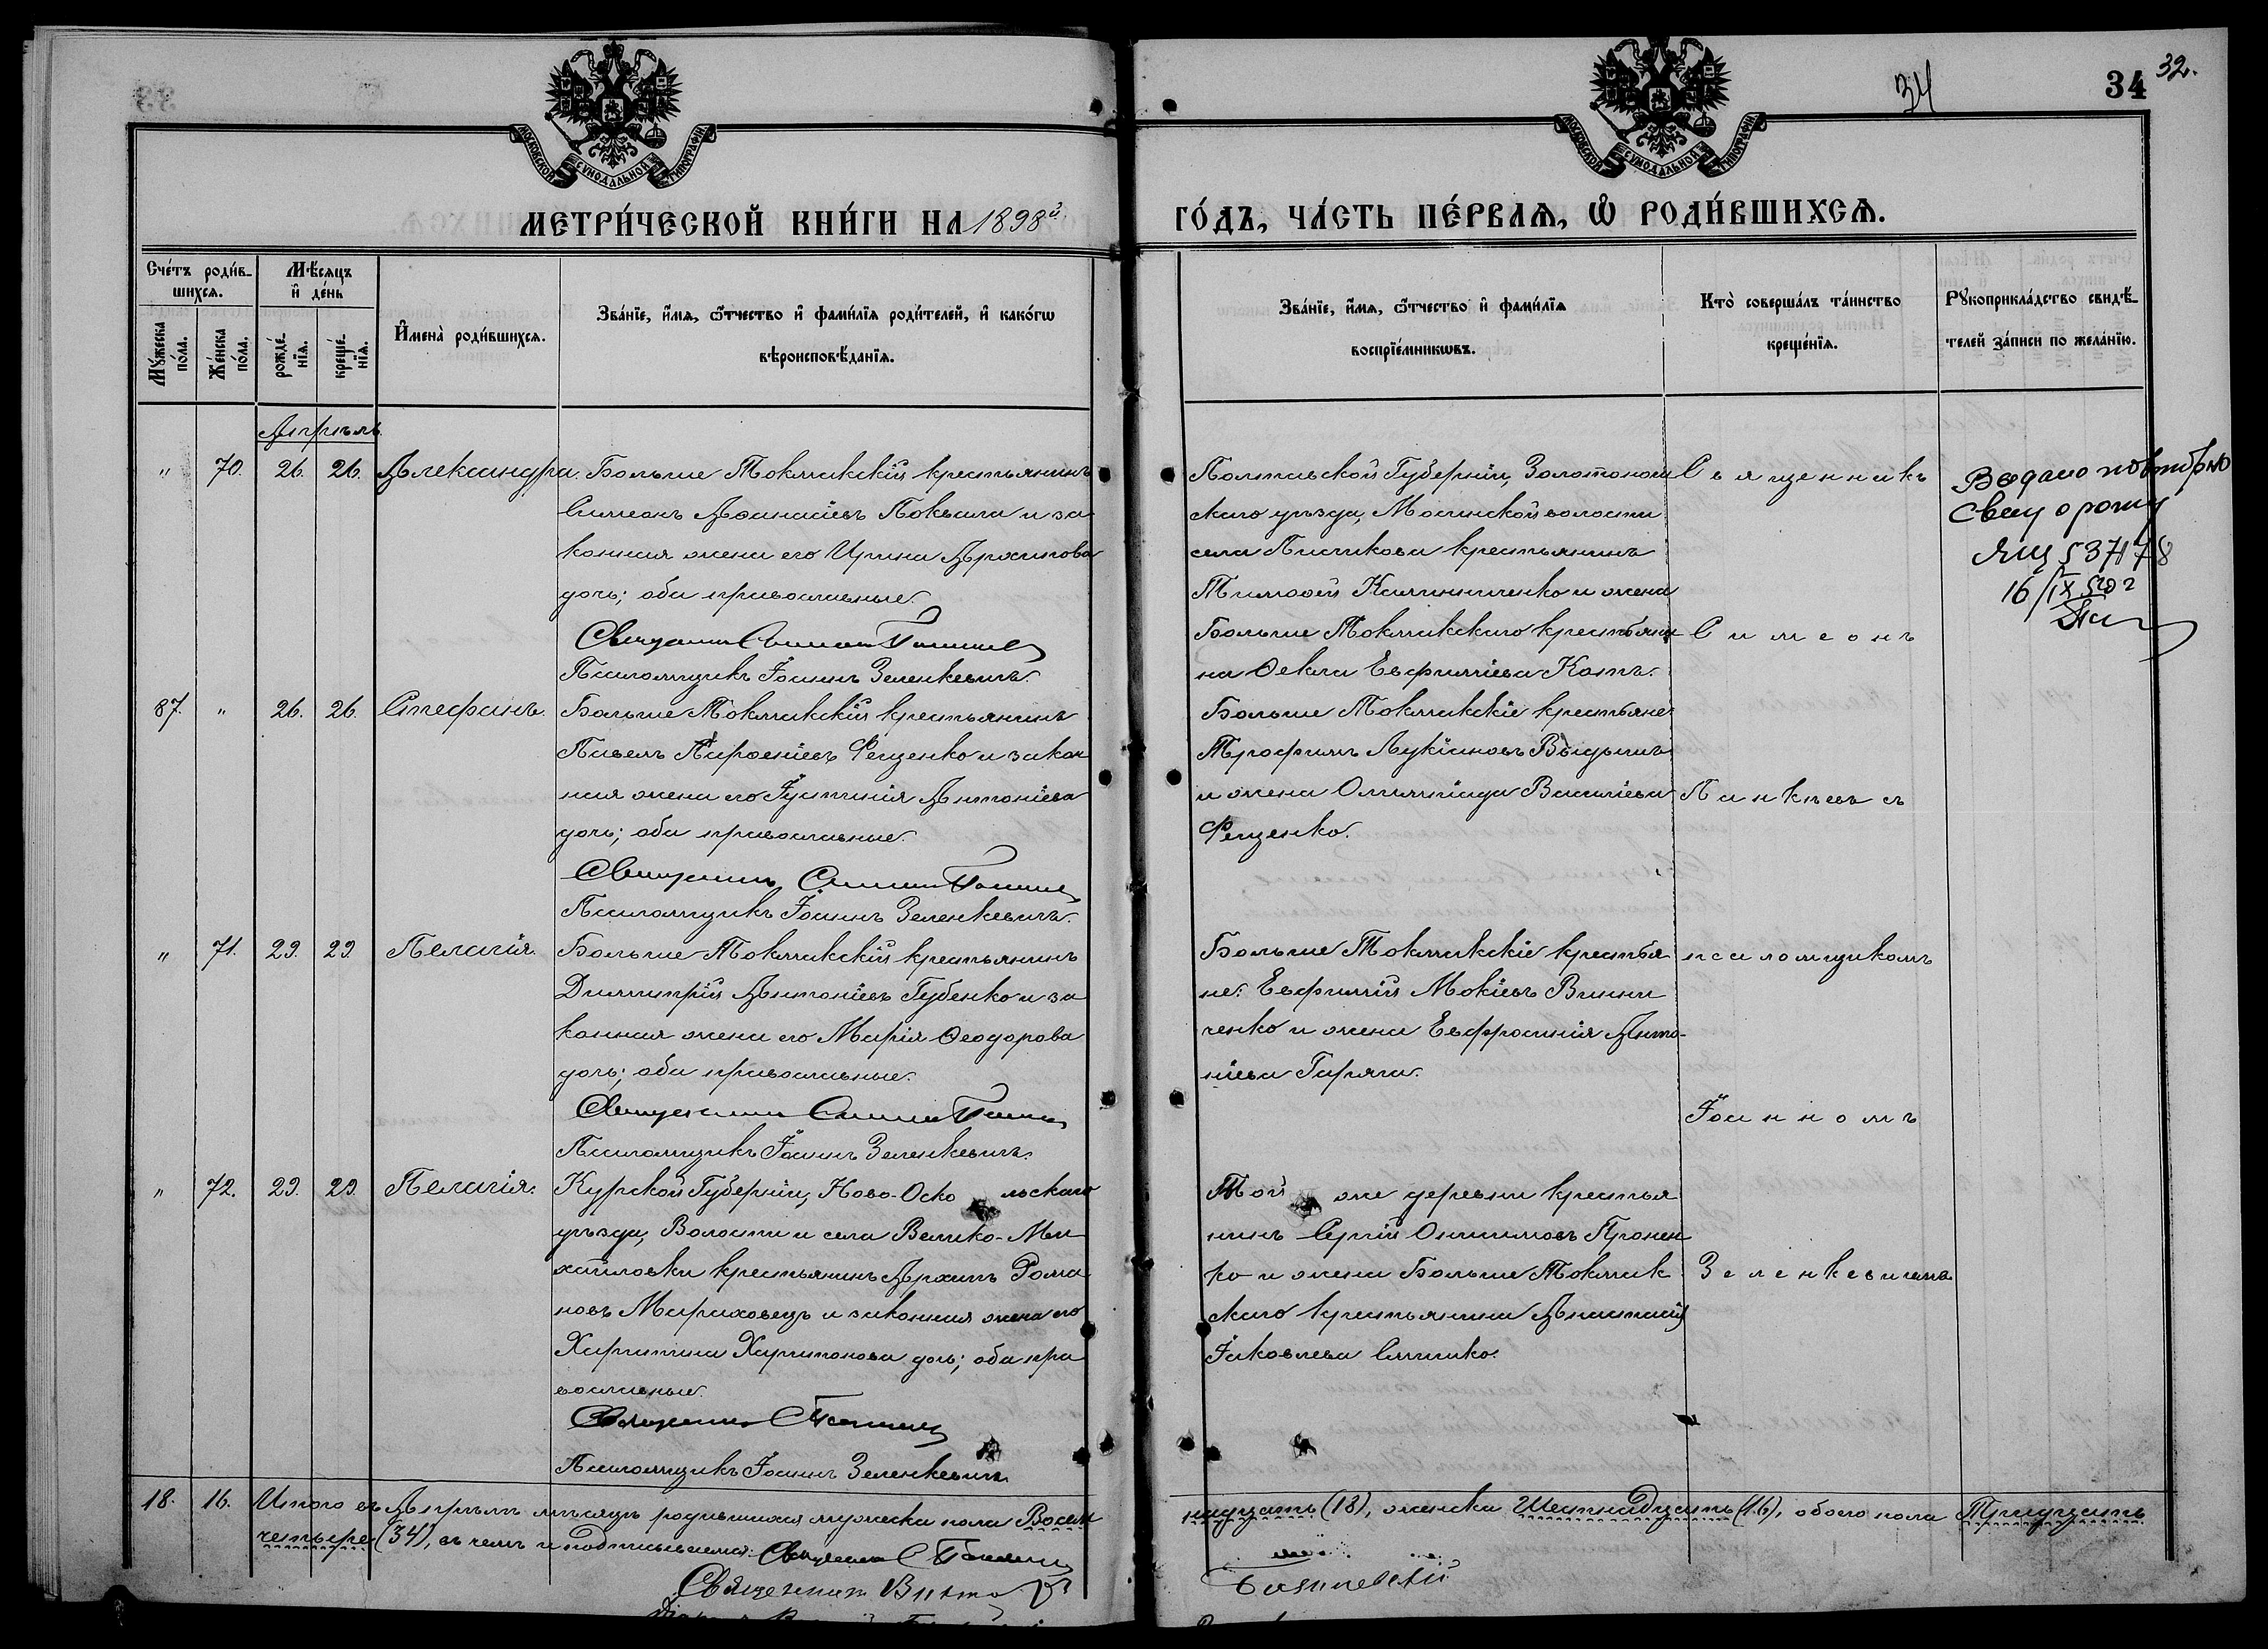 34
34
32.
МОСКОВСКОЙ СѴНОДАЛЬНОЙ ТИПОГРАФІИ
МОСКОВСКОЙ СѴНОДАЛЬНОЙ ТИПОГРАФІИ
МЕТРИ́ЧЕСКОЙ КНИ́ГИ НА 1898й
ГО́ДЪ, ЧА́СТЬ ПЕ́РВАѦ, Ѡ РОДИ́ВШИХСѦ.
Сче́тъ роди́в-
шихсѧ.
Мꙋ́жеска
по́ла.
Же́нска
по́ла.
Мѣ́сѧцъ
и҆ де́нь
рожде́-
нїѧ.
креще́-
нїѧ.
И҆мена̀ роди́вшихсѧ.
Зва́нїе, и҆́мѧ, ѻ҆́тчество и҆ фами́лїѧ роди́телей, и҆ како́гѡ
вѣроисповѣ́данїѧ.
Зва́нїе, и҆́мѧ, ѻ҆́тчество и҆ фами́лїѧ
воспрїе́мникѡвъ.
Кто̀ соверша́лъ та́инство
креще́нїѧ.
Рꙋкоприкла́дство свидѣ́-
телей за́писи по жела́нїю.
Апрѣль.
" 70. 26. 26. Александра.
Больше Токмакскій крестьянинъ
Симеонъ Аѳанасіевъ Поквала и за
конная жена его Ирина Архипова
дочь; оба православные.
Псаломщикъ Іоаннъ Зеленкевичъ.
Полтавской Губерніи, Золотонош
скаго уѣзда, Мосинской волости
села Пищикова крестьянинъ
Тимоѳей Калиниченко и жена
Больше Токмакскаго крестьяни
на Ѳекла Евфиміева Котъ.
Священникъ
Симеонъ
Выдано повторно
свид о рожд
ЯЩ 537178
16/IX 50 г
87. " 26. 26. Стефанъ.
Больше Токмакскій крестьянинъ
Павелъ Парѳеніевъ Фещенко и закон
ная жена его Іустинія Антоніева
дочь; оба православные.
Псаломщикъ Іоаннъ Зеленкевичъ.
Больше Токмакскіе крестьяне:
Трофимъ Лукіановъ Выдышъ
и жена Олимпіада Василіева
Фещенко.
Панкѣевъ съ
" 71. 29. 29. Пелагія.
Больше Токмакскій крестьянинъ
Димитрій Антоніевъ Губенко и за
конная жена его Марія Ѳеодорова
дочь; оба православные.
Псаломщикъ Іоаннъ Зеленкевичъ.
Больше Токмакскіе крестья
не: Евфимій Мокіевъ Винни
ченко и жена Евфросинія Анто-
ніева Гаряча.
псаломщикомъ
Іоанномъ
" 72. 29. 29. Пелагія.
Курской Губерніи, Ново-Оско льскаго
уѣзда, Волости и села Велико-Ми
хайловки крестьянинъ Архипъ Рома
новъ Мариховецъ и законная жена его
Харитина Харитонова дочь; оба пра
вославные.
Псаломщикъ Іоаннъ Зеленкевичъ
Той же деревни крестья
нинъ Сергій Онисимовъ Пронен
ко и жена Больше Токмак
скаго крестьянина Анастасія
Іаковлева Слишко.
Зеленкевичемъ
18. 16. Итого въ Апрѣлѣ мѣсяцѣ родившихся мужеска пола Восем
надцать (18), женска Шестнадцать (16), обоего пола Тридцать
четыре (34), въ чемъ и подписываемся:
Священникъ